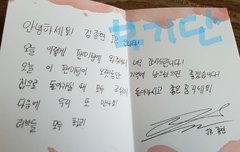 안녕하세요 김종현 JR 입니다
오늘 이렇게 팬미팅에 와주셔서 너무 감사드립니다!
오늘 이 팬미팅이 오랫동안 기억에 남으셨으면 좋겠습니다
집으로 돌아가실 때 모두 조심히 돌아가시고 좋은 꿈 꾸세요
다음에 우리 또 만나요
러브들 모두
JR 종현
보기단